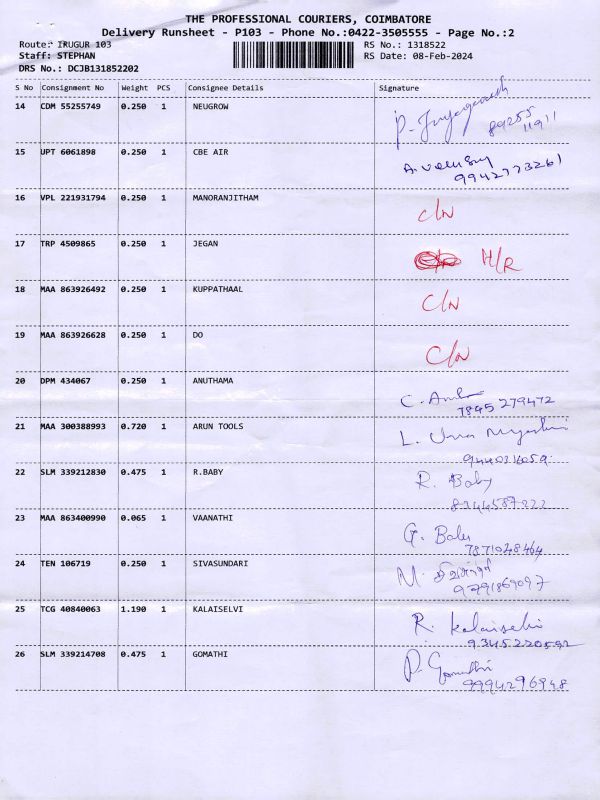 THE PROFESSIONAL COURIERS, COIMBATORE
Delivery Runsheet - P103 - Phone No.:0422-3505555 - Page No.:2
Route: IRUGUR 103 RS No.: 1318522
Staff: STEPHAN RS Date: 08-Feb-2024
DRS No.: DCJB131852202
S No Consignment No Weight PCS Consignee Details Signature
14 CDM 55255749 0.250 1 NEUGROW P.
89255
11911
15 UPT 6061898 0.250 1 CBE AIR A.
9942773261
16 VPL 221931794 0.250 1 MANORANJITHAM C/N
17 TRP 4509865 0.250 1 JEGAN H/R
18 MAA 863926492 0.250 1 KUPPATHAAL C/N
19 MAA 863926628 0.250 1 DO C/N
20 DPM 434067 0.250 1 ANUTHAMA C.
7845 279472
21 MAA 300388993 0.720 1 ARUN TOOLS L. Uma
22 SLM 339212830 0.475 1 R.BABY R. Baby
8344587222
23 MAA 863400990 0.065 1 VAANATHI G. Babu
7871048464
24 TEN 106719 0.250 1 SIVASUNDARI M.
9791869097
25 TCG 40840063 1.190 1 KALAISELVI R. kalaiselvi
9345220592
26 SLM 339214708 0.475 1 GOMATHI P. Gomathi
9994296948